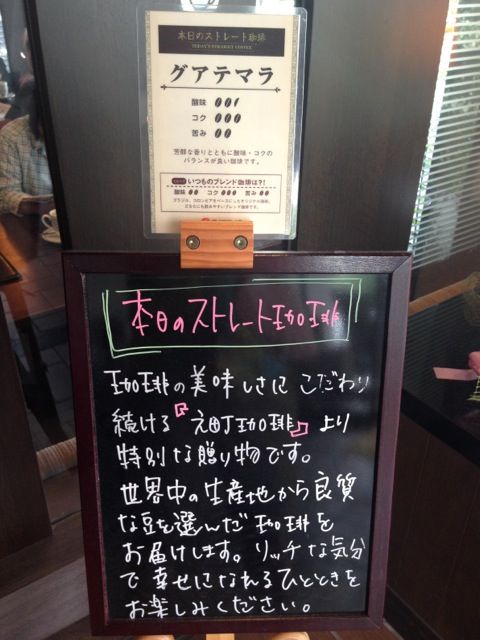 本日のストレート珈琲
TODAY'S STRAIGHT COFFEE
グアテマラ
酸味
コク
苦み
芳醇な香りとともに酸味・コクの
バランスが良い珈琲です。
いつものブレンド珈琲は?!
酸味 コク 苦み
ブラジル、コロンビアをベースにしたオリジナル珈琲。
どなたにも飲みやすいブレンド珈琲です。
本日のストレート珈琲
珈琲の美味しさにこだわり
続ける『元町珈琲』より
特別な贈り物です。
世界中の生産地から良質
な豆を選んだ珈琲を
お届けします。リッチな気分
で幸せになれるひとときを
お楽しみください。